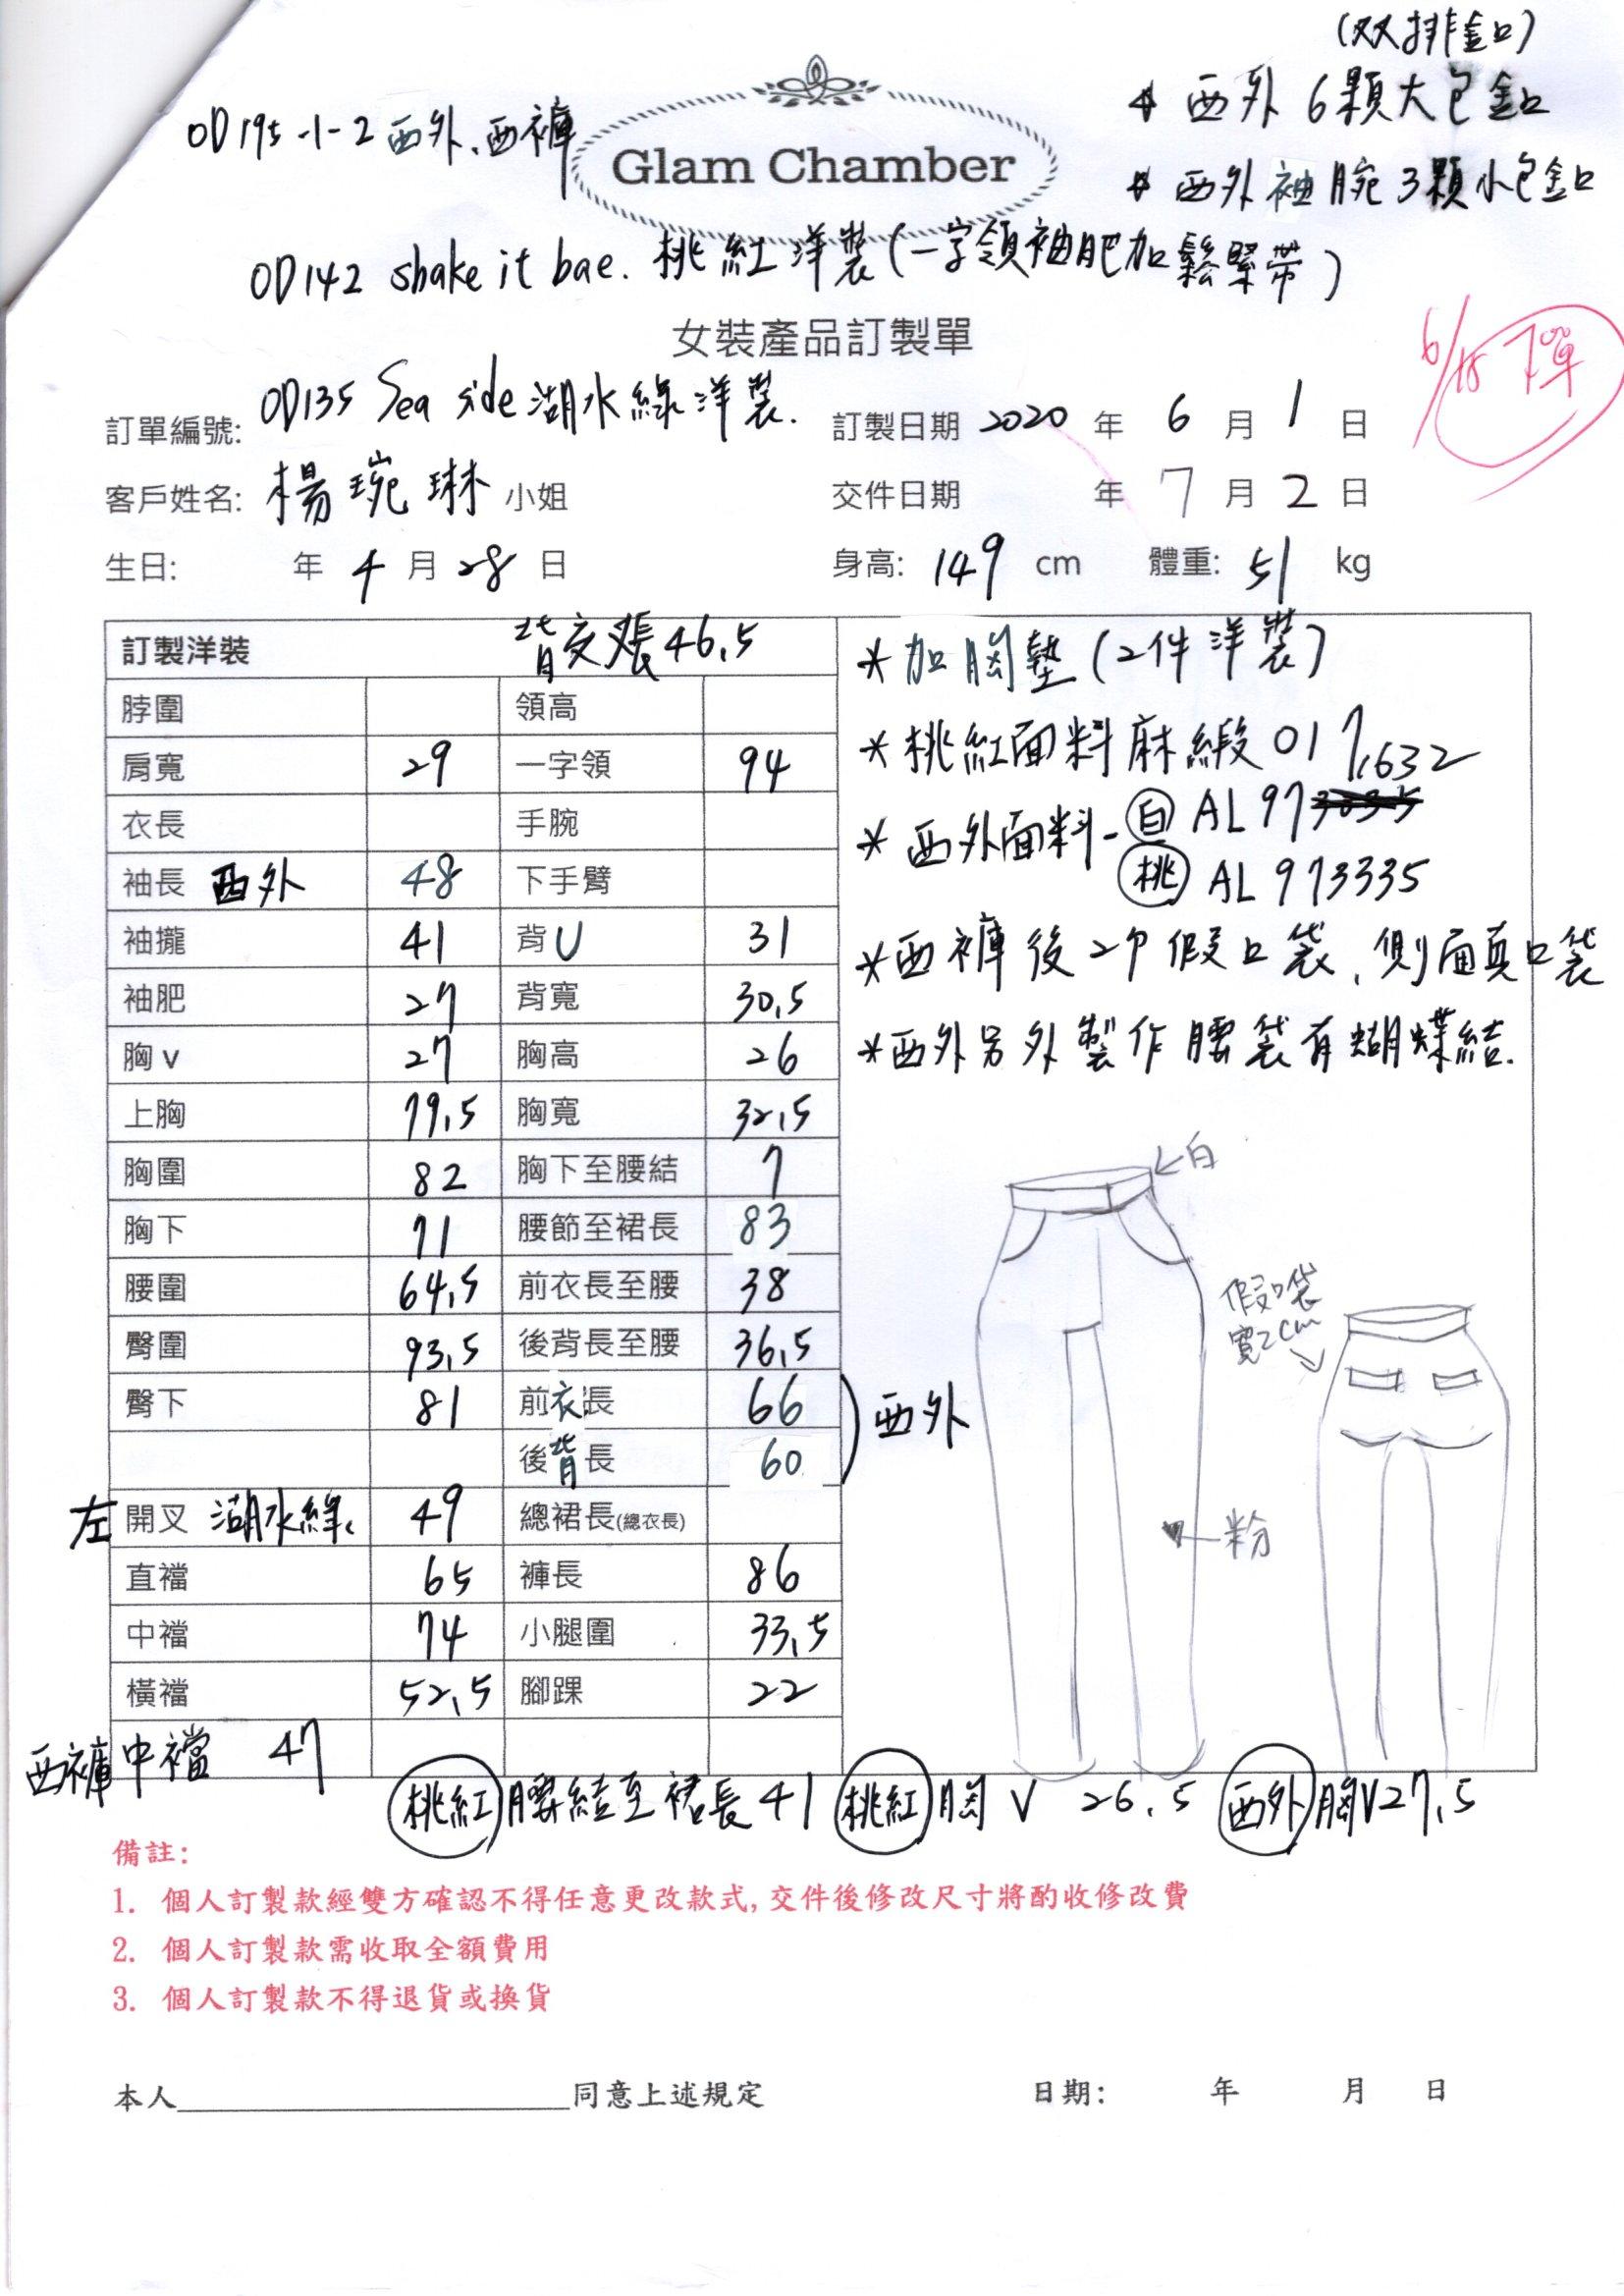 (双排釦)
OD195-1-2 西外、西褲
* 西外 6顆大包釦
Glam Chamber
* 西外袖腕3顆小包釦
OD142 shake it bae. 桃紅洋裝(一字領袖肥加鬆緊帶)
女裝產品訂製單
6/15 下單
OD135 Sea side 湖水綠洋裝.
訂單編號:
訂製日期 2020 年 6 月 1 日
客戶姓名: 楊琬琳 小姐
交件日期 年 7 月 2 日
生日: 年 4 月 28 日
身高: 149 cm 體重: 51 kg
訂製洋裝 背交叉長46.5
脖圍 領高
肩寬 29 一字領 94
衣長 手腕
袖長 西外 48 下手臂
袖攏 41 背U 31
袖肥 27 背寬 30.5
胸v 27 胸高 26
上胸 79.5 胸寬 32.5
胸圍 82 胸下至腰結 7
胸下 71 腰節至裙長 83
腰圍 64.5 前衣長至腰 38
臀圍 93.5 後背長至腰 36.5
臀下 81 前衣長 66
後背長 60
西外
左 開叉 湖水綠 49 總裙長(總衣長)
直襠 65 褲長 86
中襠 74 小腿圍 33.5
橫襠 52.5 腳踝 22
西褲中襠 47
* 加胸墊(2件洋裝)
* 桃紅面料麻緞 017.632
* 西外面料-白 AL97
桃 AL973335
*西褲後2个假口袋、側面真口袋
*西外另外製作腰袋有蝴蝶結.
←白
假口袋
寬2cm
←粉
桃紅 腰結至裙長41 桃紅 胸V 26.5 西外 胸V27.5
備註:
1. 個人訂製款經雙方確認不得任意更改款式, 交件後修改尺寸將酌收修改費
2. 個人訂製款需收取全額費用
3. 個人訂製款不得退貨或換貨
本人____________________同意上述規定
日期: 年 月 日